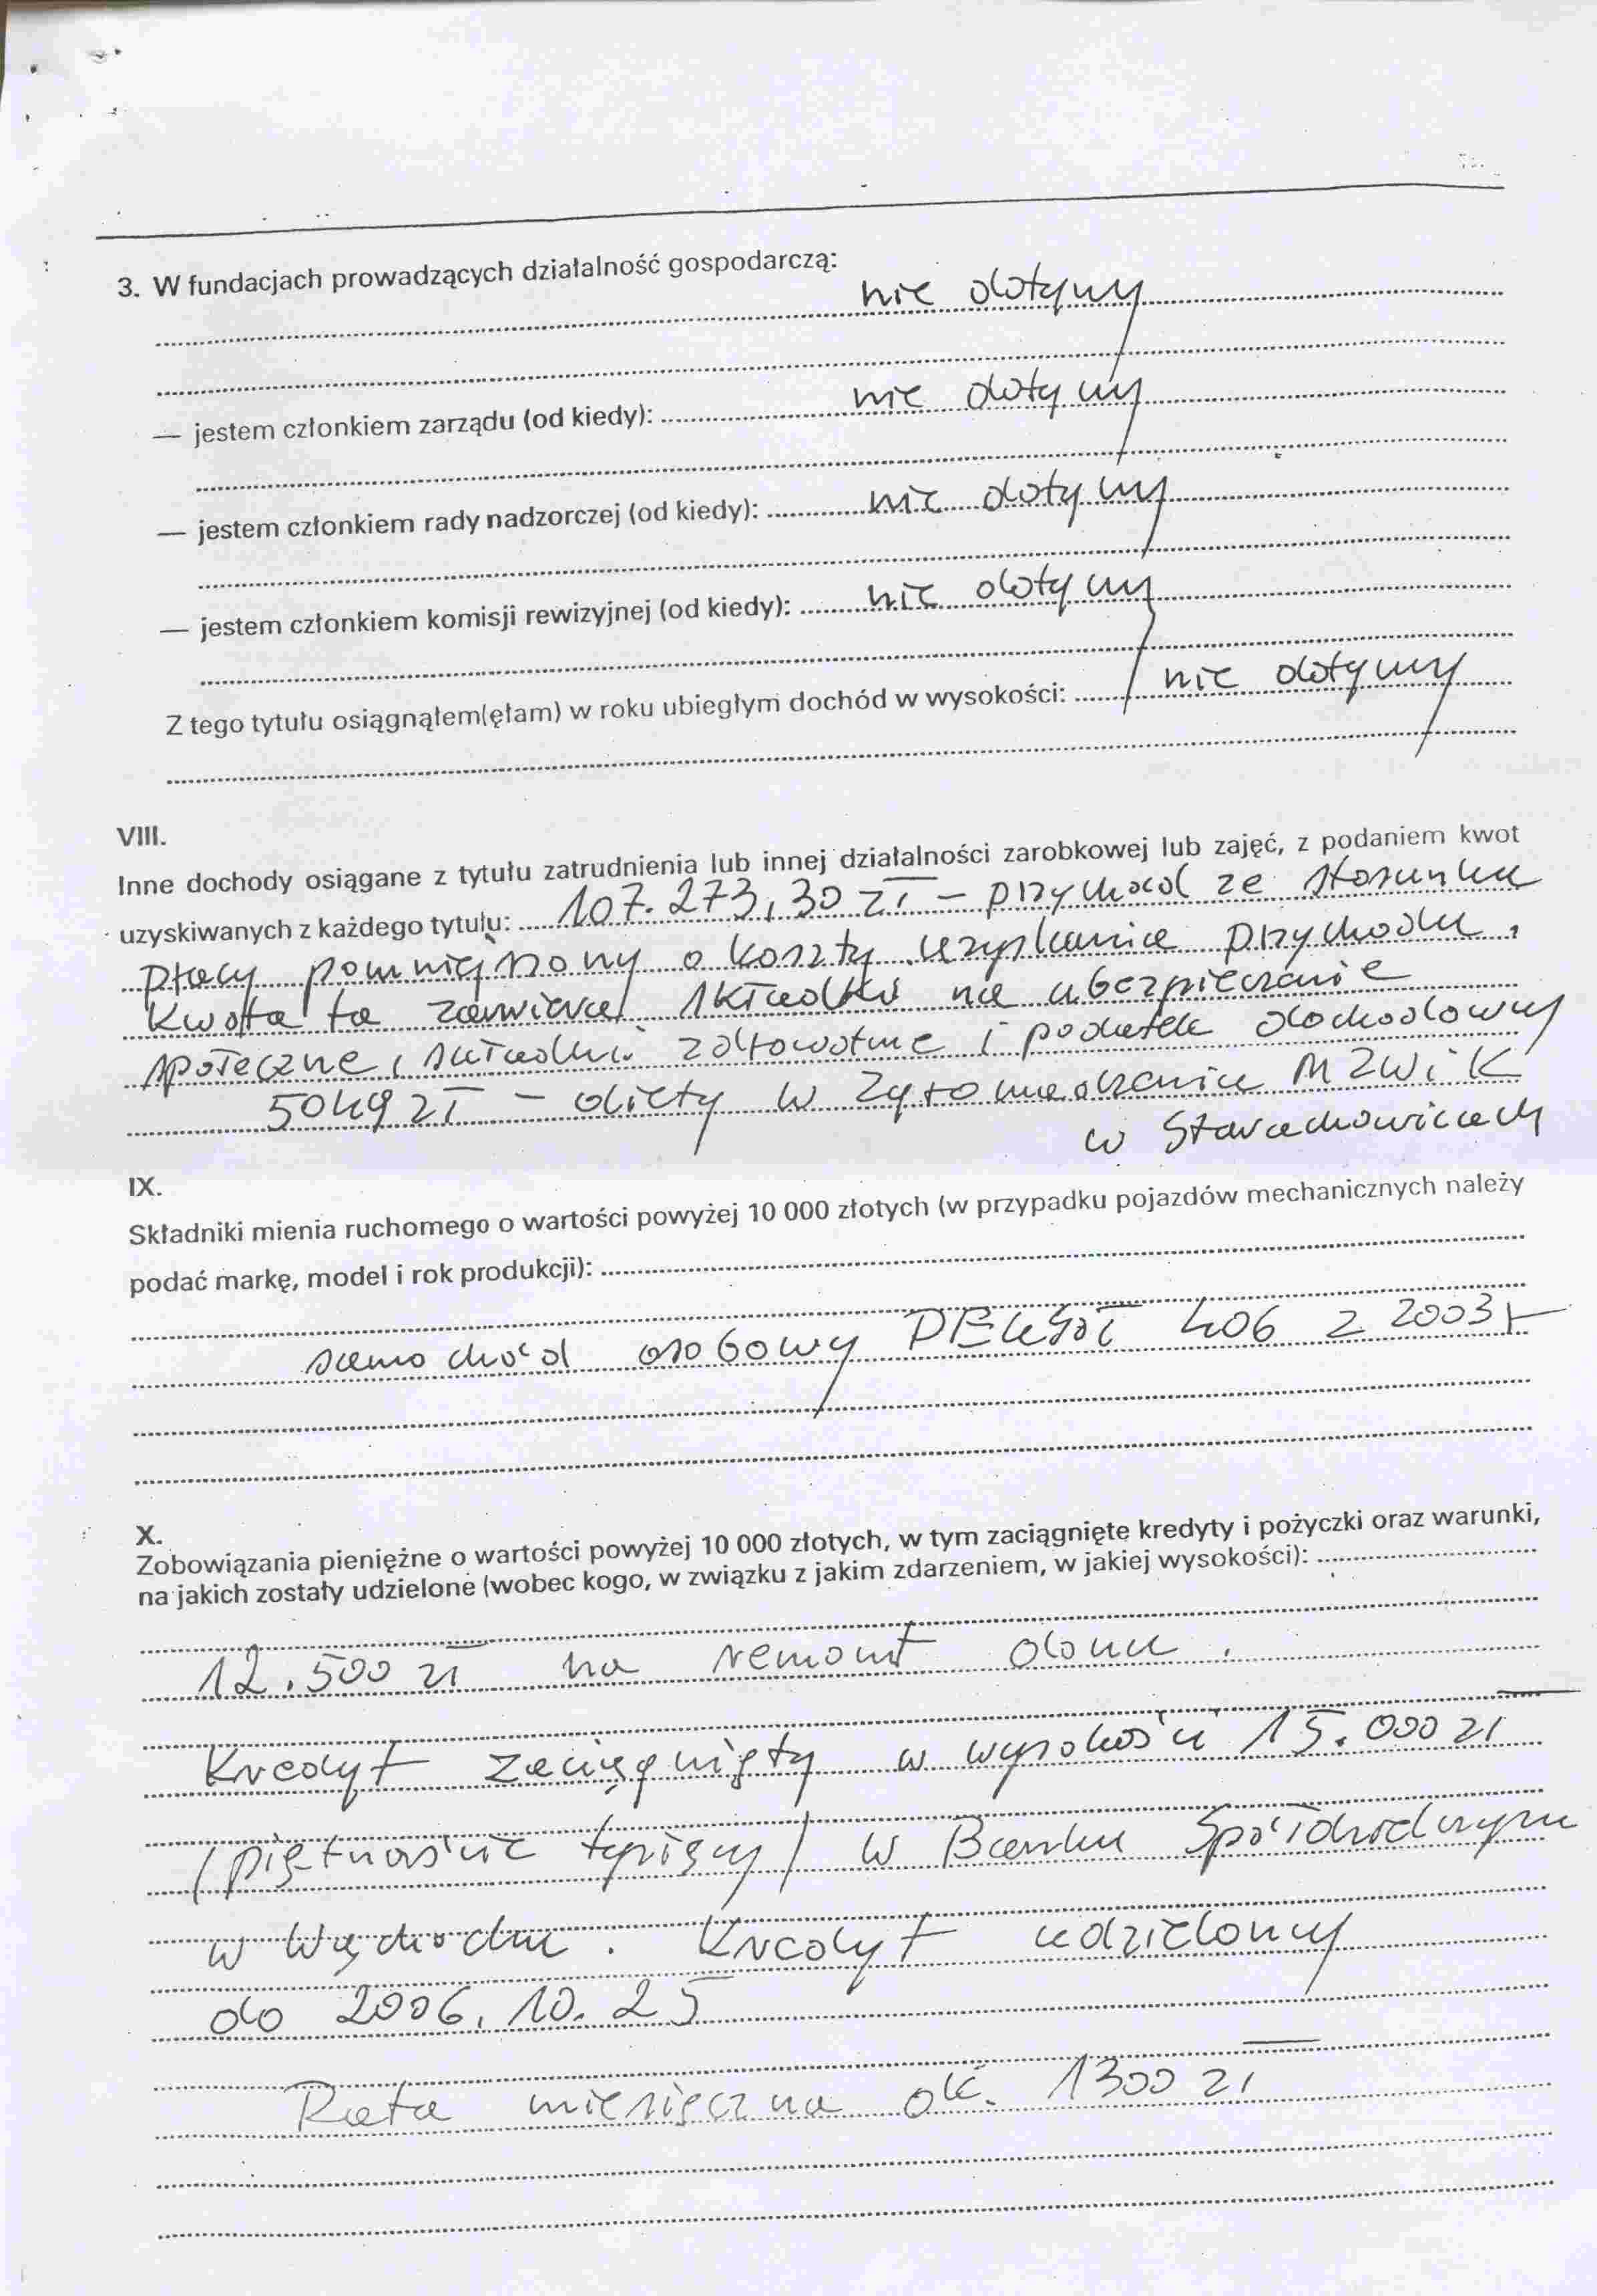 3. W fundacjach prowadzących działalność gospodarczą:
nie dotyczy
— jestem członkiem zarządu (od kiedy): nie dotyczy
— jestem członkiem rady nadzorczej (od kiedy): nie dotyczy
— jestem członkiem komisji rewizyjnej (od kiedy): nie dotyczy
Z tego tytułu osiągnąłem(ęłam) w roku ubiegłym dochód w wysokości: nie dotyczy
VIII.
Inne dochody osiągane z tytułu zatrudnienia lub innej działalności zarobkowej lub zajęć, z podaniem kwot
uzyskiwanych z każdego tytułu: 107.273,30 zł – przychód ze stosunku
pracy pomniejszony o koszty uzyskania przychodu,
Kwota ta zawiera składki na ubezpieczenie
społeczne, składki zdrowotne i podatek dochodowy
5049 zł – diety w Zgromadzeniu MZWiK
w Starachowicach
IX.
Składniki mienia ruchomego o wartości powyżej 10 000 złotych (w przypadku pojazdów mechanicznych należy
podać markę, model i rok produkcji):
samochód osobowy 406 z 2003 r
X.
Zobowiązania pieniężne o wartości powyżej 10 000 złotych, w tym zaciągnięte kredyty i pożyczki oraz warunki,
na jakich zostały udzielone (wobec kogo, w związku z jakim zdarzeniem, w jakiej wysokości):
12.500 zł na remont domu.
Kredyt zaciągnięty w wysokości 15.000 zł
/piętnaście tysięcy/ w Banku Spółdzielczym
w Wąchocku. Kredyt udzielony
do 2006.10.25
Rata miesięczna ok. 1300 zł